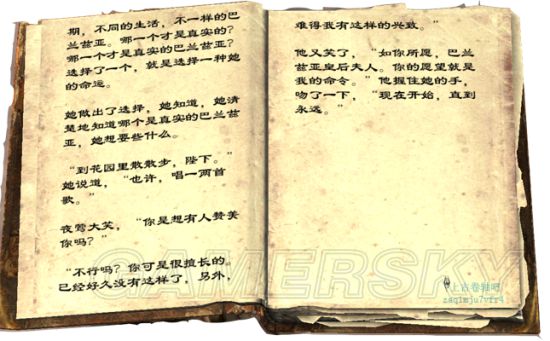 期，不同的生活，不一样的巴
兰兹亚。哪一个才是真实的？
哪一个才是真实的巴兰兹亚？
选择了一个，就是选择一种她
的命运。
她做出了选择，她知道，她清
楚地知道哪个是真实的巴兰兹
亚，她想要些什么。
“到花园里散散步，陛下。”
她说道，“也许，唱一两首
歌。”
夜莺大笑，“你是想有人赞美
你吗？”
“不行吗？你可是很擅长的。
已经好久没有这样了，另外，
难得我有这样的兴致。”
他又笑了，“如你所愿，巴兰
兹亚皇后夫人。你的愿望就是
我的命令。”他握住她的手，
吻了一下，“现在开始，直到
永远。”
GAMERSKY
上古卷轴吧
zaq1mju7vfr4